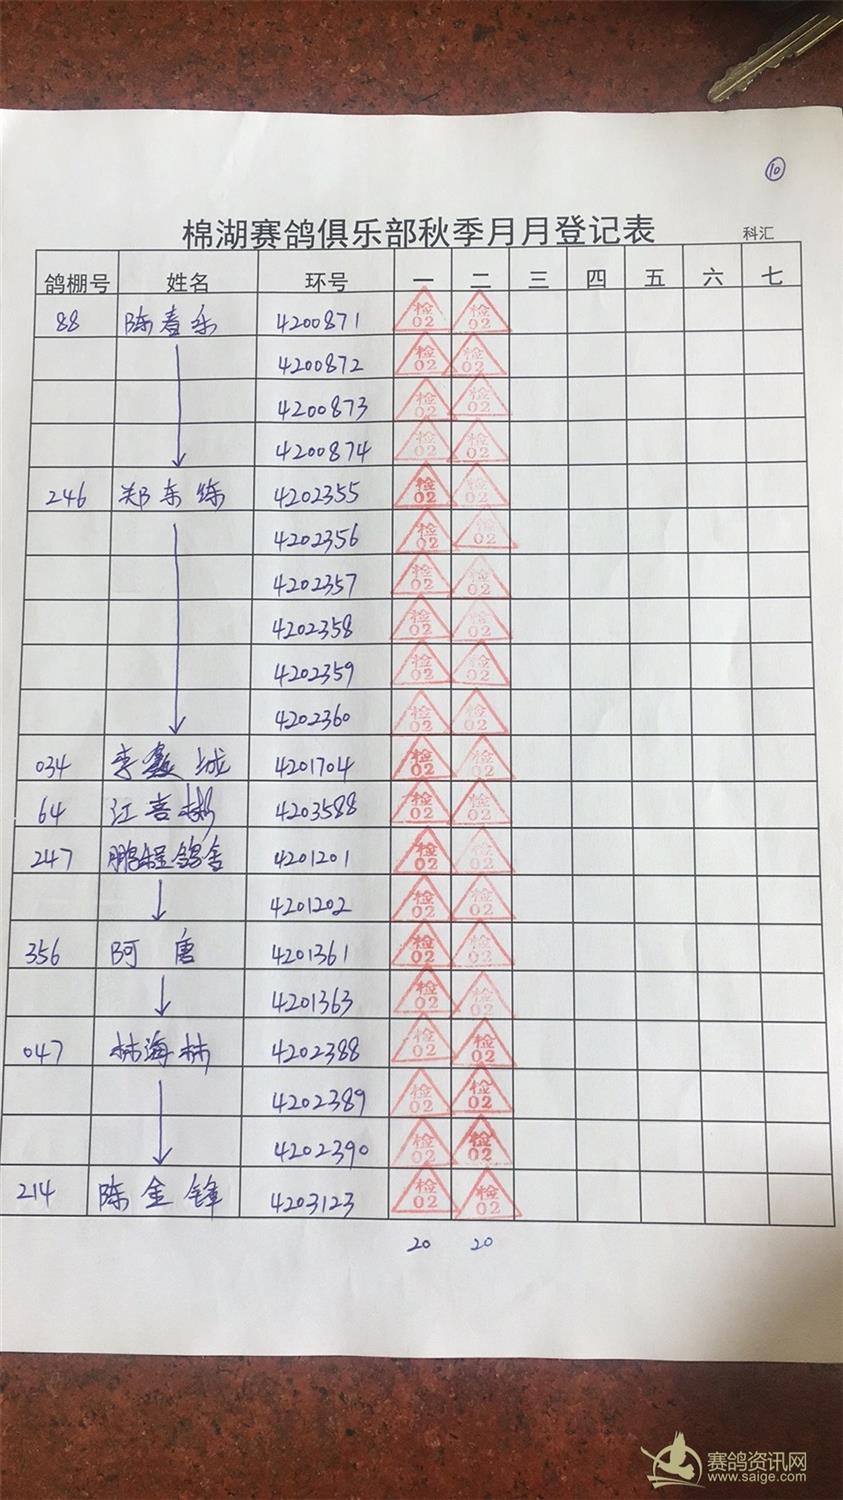 ⑩
棉湖赛鸽俱乐部秋季月月登记表 科汇
鸽棚号 姓名 环号 一 二 三 四 五 六 七
88 陈喜乐 4200871 检02 检02
4200872 检02 检02
4200873 检02 检02
4200874 检02 检02
246 郑东练 4202355 检02 检02
4202356 检02 检02
4202357 检02 检02
4202358 检02 检02
4202359 检02 检02
4202360 检02 检02
034 李鑫城 4201704 检02 检02
64 江喜彬 4203588 检02 检02
247 鹏程鸽舍 4201201 检02 检02
4201202 检02 检02
356 阿唐 4201361 检02 检02
4201363 检02 检02
047 林海林 4202388 检02 检02
4202389 检02 检02
4202390 检02 检02
214 陈金锋 4203123 检02 检02
20 20
赛鸽资讯网
www.saige.com